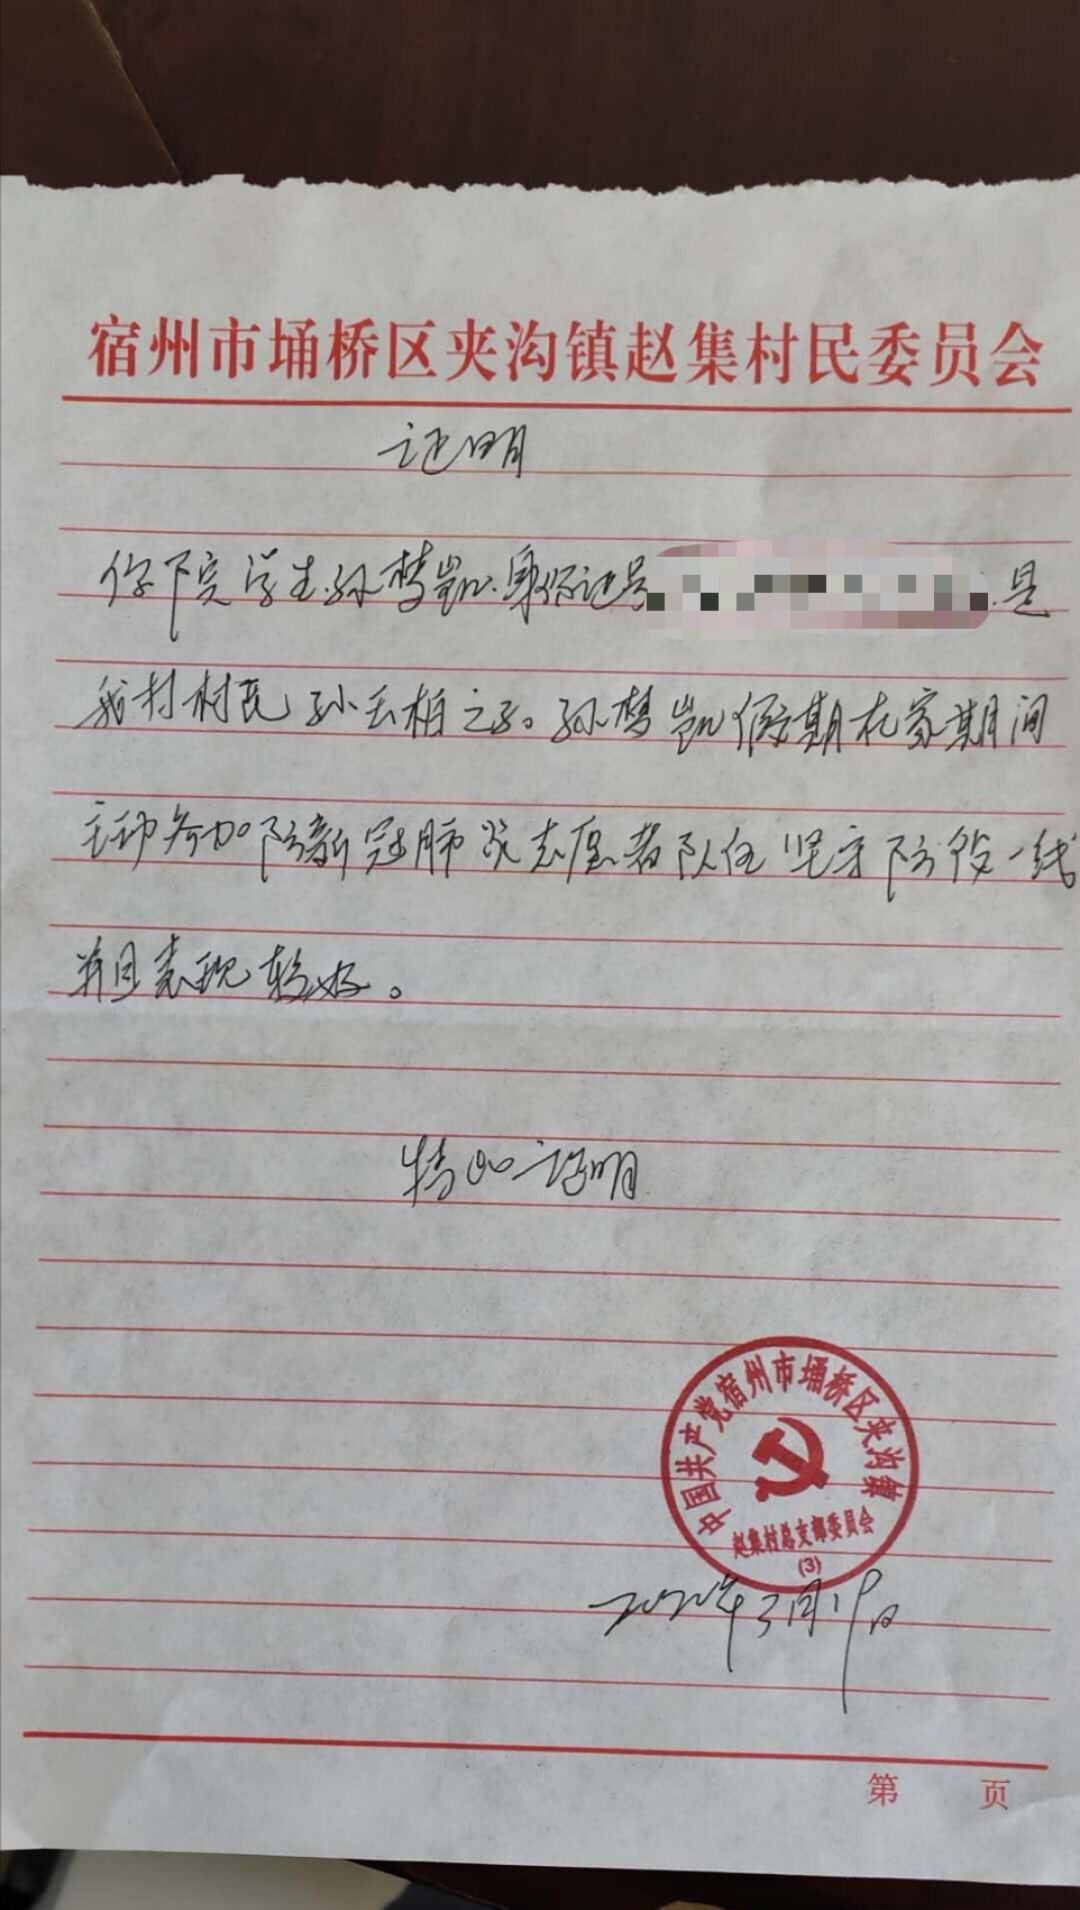 宿州市埇桥区夹沟镇赵集村民委员会
证明
你院学生孙梦凯.身份证号 是
我村村民孙云柏之子。孙梦凯假期在家期间
主动参加防新冠肺炎志愿者队伍坚守防役一线
并且表现较好。
特此证明
中国共产党宿州市埇桥区夹沟镇
赵集村总支部委员会
(3)
2020年3月19日
第 页